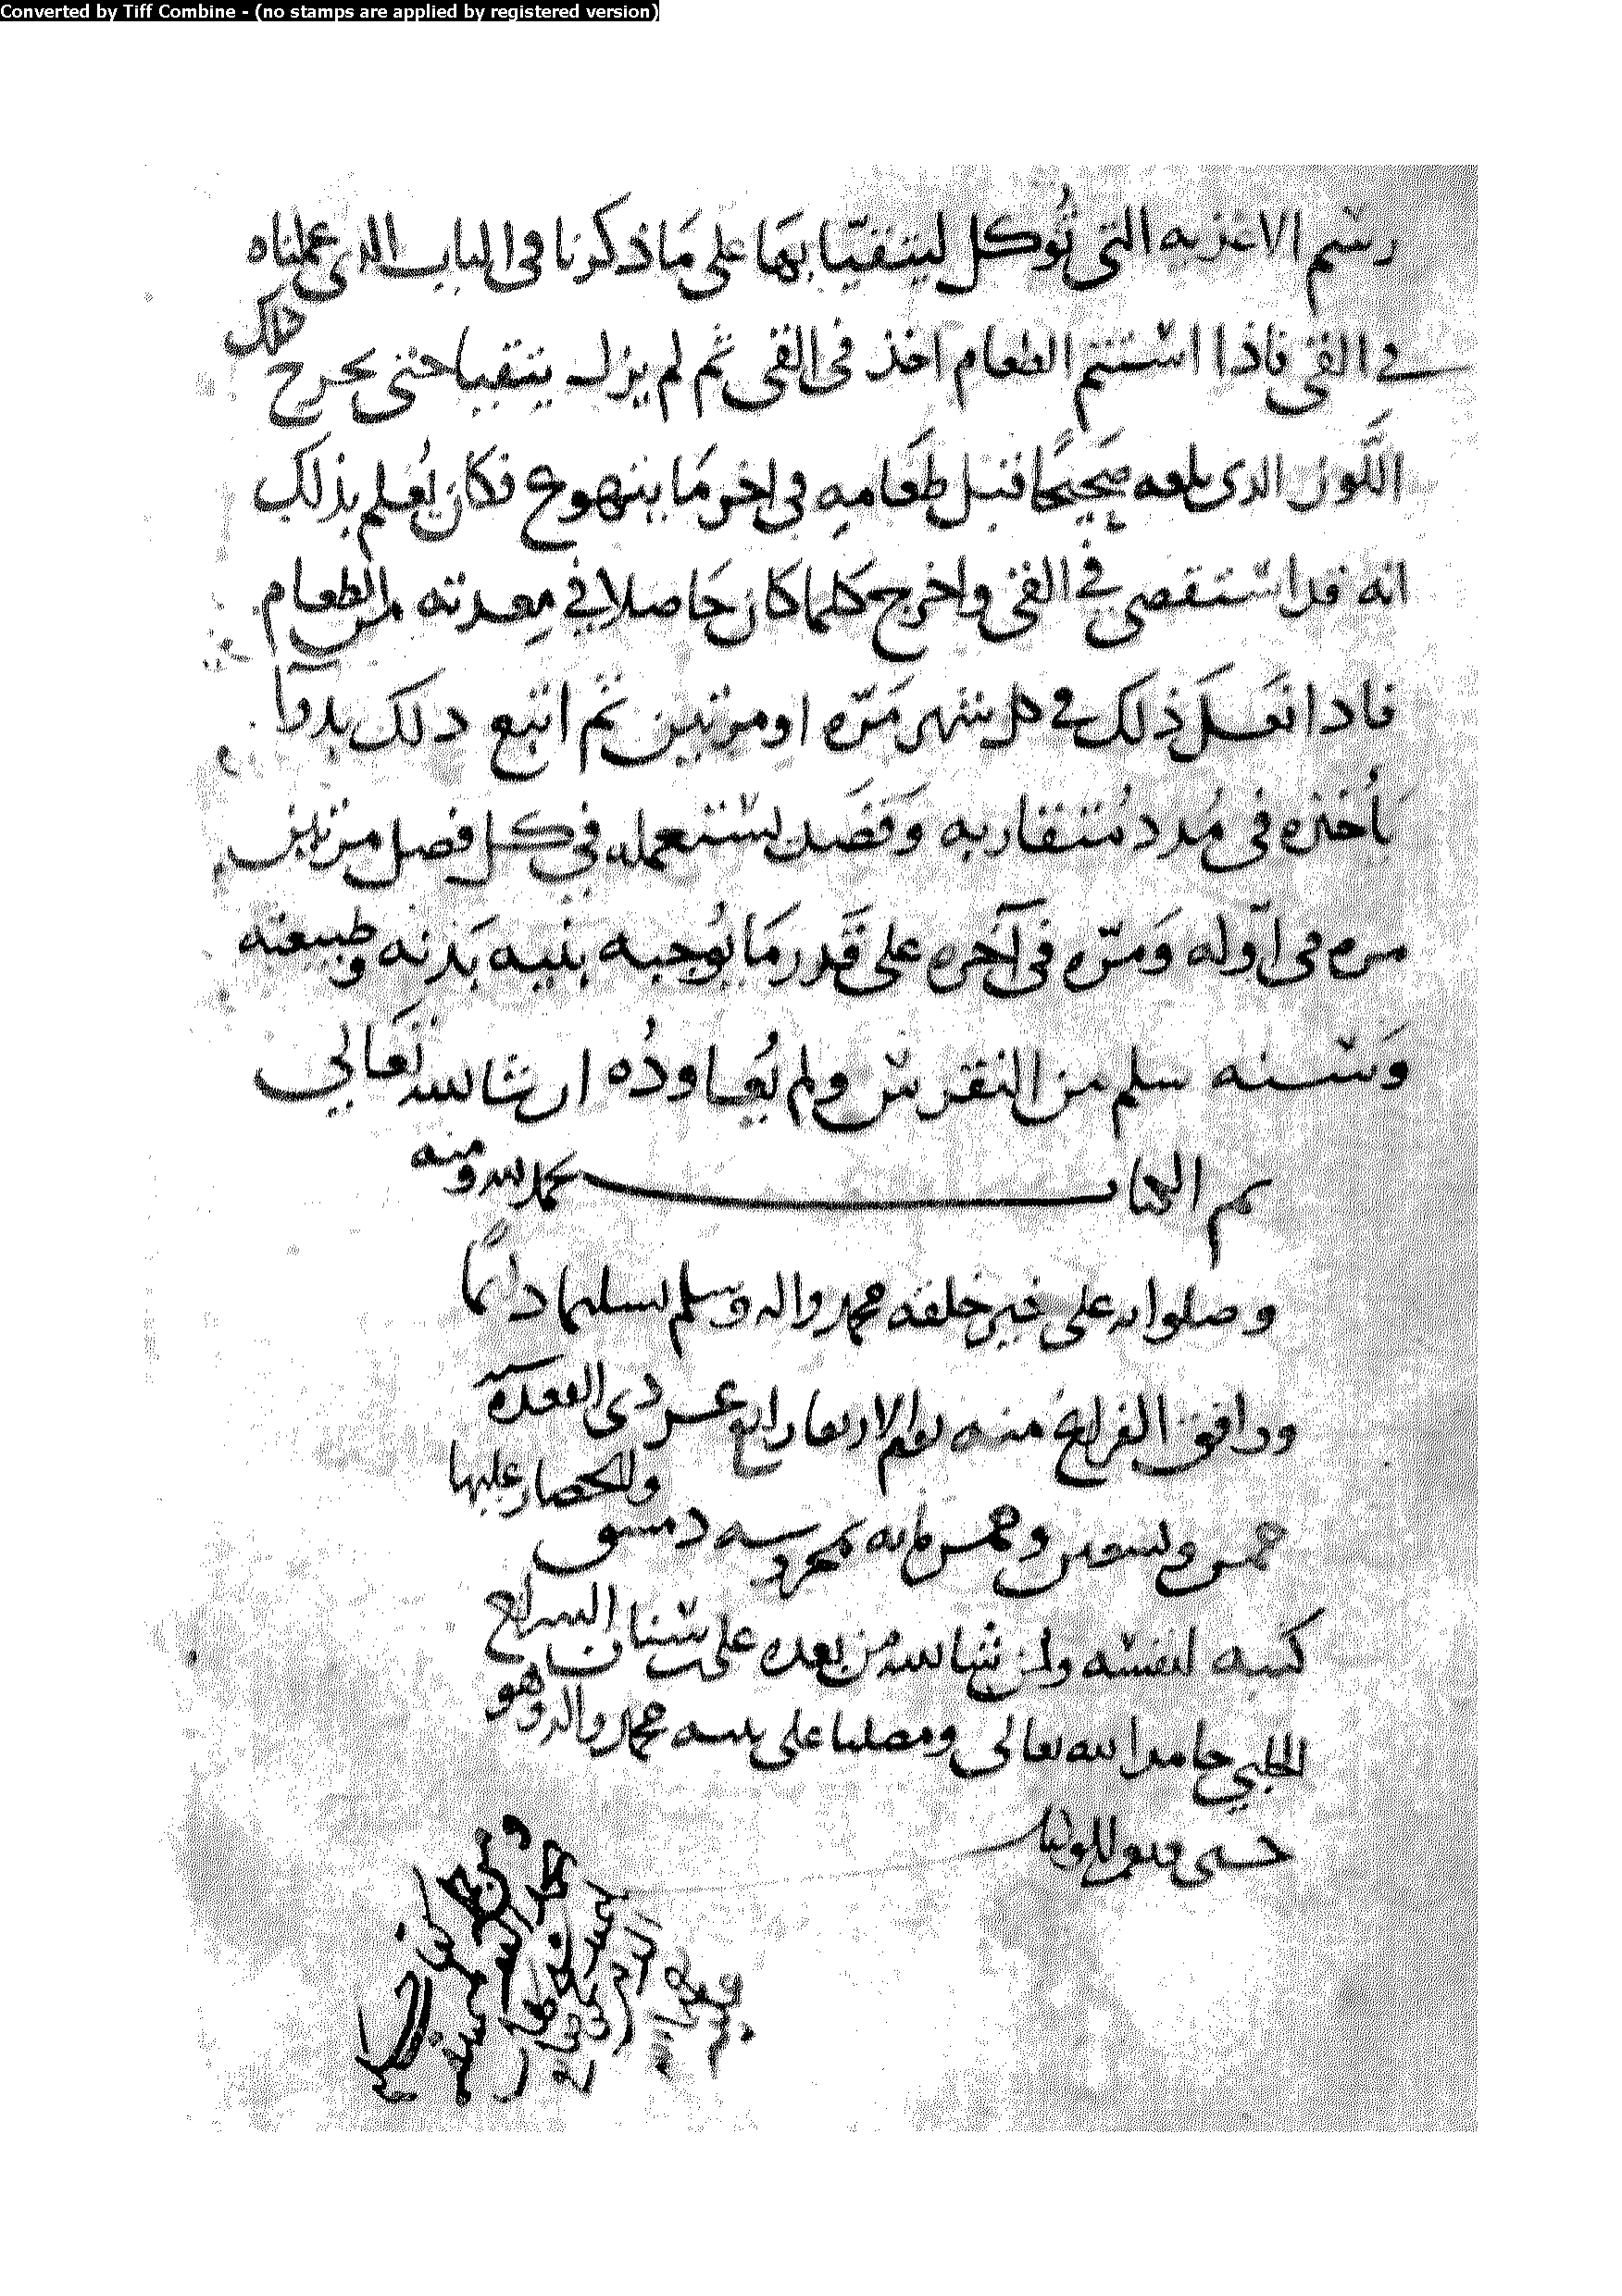 Converted by Tiff Combine - (no stamps are applied by registered version)
رسم الاغذيه التى تُوكل ليتقيّا بهَا على مَا ذكرنا فى الباب الدى عملناه
فى القى فاذا استتم الطعام اخذ فى القى ثم لم يزل يتقيا حتى يخرج ذلك
اللَّوز الدى بلعه صَحيحًا قبل طعَامِهِ فى اخر مَا يتهوع فكان يُعلم بذلك
انه قد استقصى في القى واخرج كلما كان حَاصلا في مِعدته من الطعام
فادا فعَلَ ذلك في كل شهر مَرّه او مرتين ثم اتبع دلك بدوآ
ياُخذه فى مُدد مُتقاربه وَفصَد يستعمله في كل فصل مرتين
مره فى اوله وَمرّه فى آخره على قَدر مَا يُوجبه بنيه بَدنه وطبيعته
وَسنه سلم من النقرس ولم يُعاودُه ان شا الله تعَالي
تم الكتاب بحمد الله ومنه
وصلواته على خير خلقه محمد واله وسلم تسليما دائمًا
ووافق الفراغ منه يوم الاربعا رابع عشر دى القعدة
خمس وتسعين وخمس مايه بمحروسه دمشق والحصار عليها
كتبه لنفسه ولمن شا الله من بعده على
حامدا لله تعالى ومصليا على نبيه محمد واله وهو
حسبى ونعم الوكيل